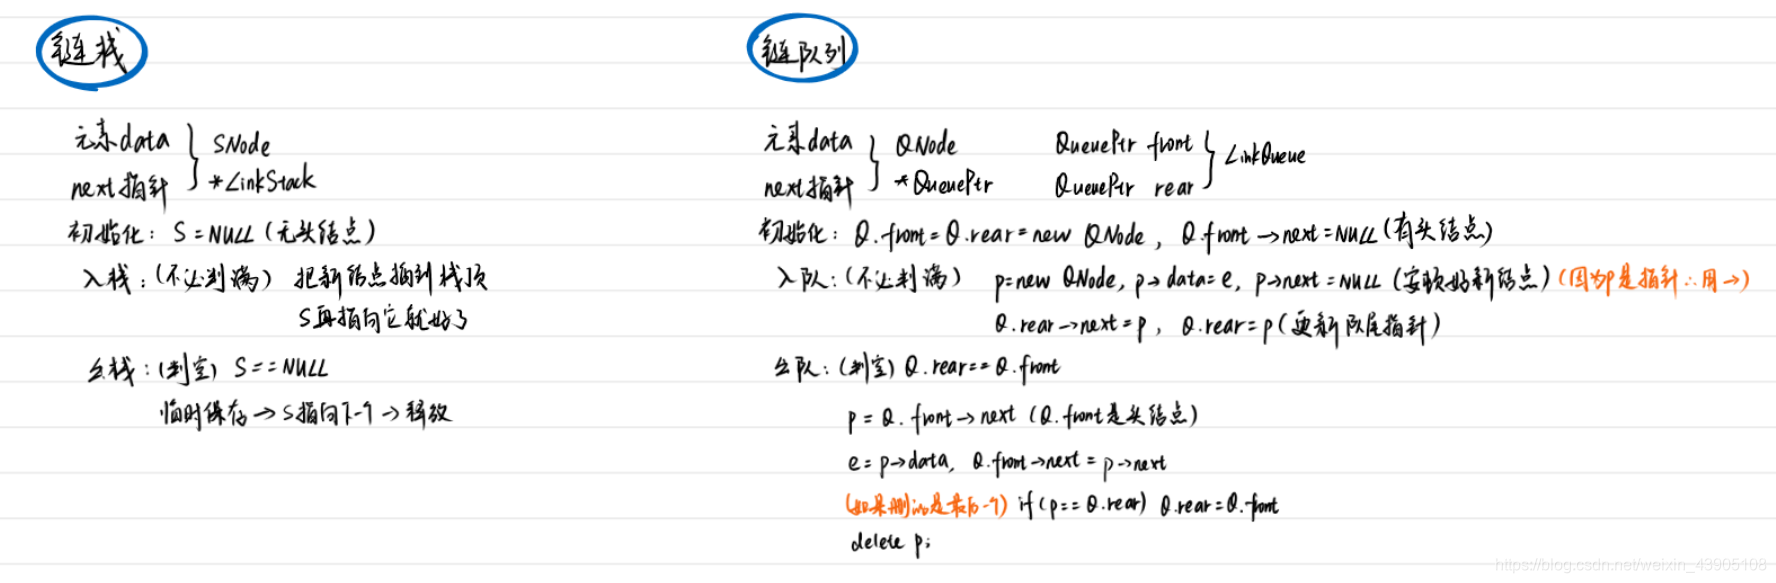 链栈
元素data
next指针
SNode
*LinkStack
初始化: S=NULL (无头结点)
入栈: (不必判满) 把新结点插到栈顶
S再指向它就好了
出栈: (判空) S==NULL
临时保存→S指向下一个→释放
链队列
元素data
next指针
QNode
*QueuePtr
QueuePtr front
QueuePtr rear
LinkQueue
初始化: Q.front=Q.rear=new QNode, Q.front→next=NULL(有头结点)
入队: (不必判满) p=new QNode, p→data=e, p→next=NULL (安顿好新结点) (因为p是指针∴用→)
Q.rear→next=p, Q.rear=p(更新队尾指针)
出队: (判空) Q.rear==Q.front
p=Q.front→next (Q.front是头结点)
e=p→data, Q.front→next=p→next
(如果删的是最后一个) if(p==Q.rear) Q.rear=Q.front
delete p;
https://blog.csdn.net/weixin_43905108